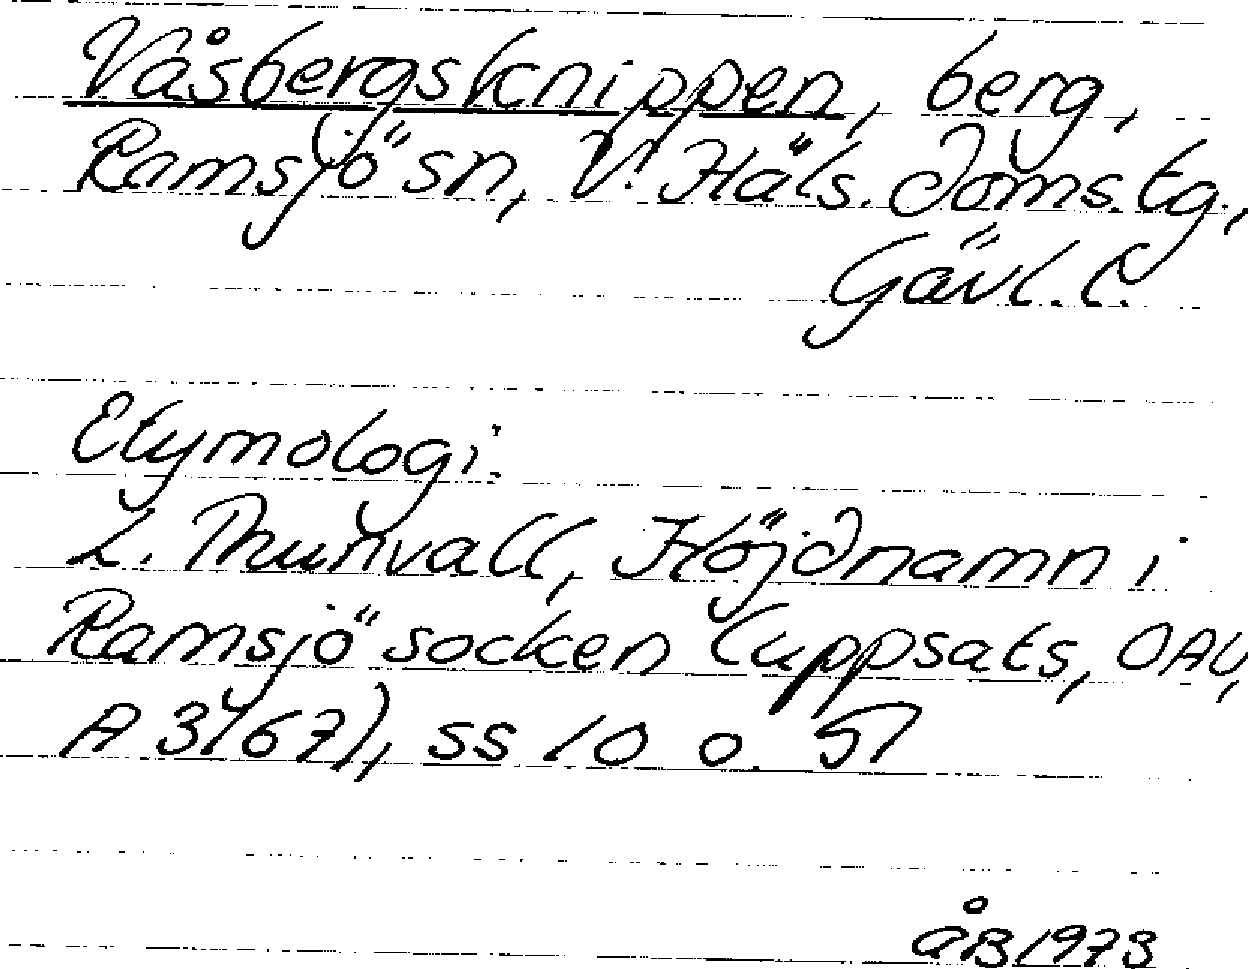 Våsbergsknippen, berg,
Ramsjö sn, V. Häls. doms.tg,
Gävl. l.
Etymologi:
L. Thunvall, Höjdnamn i
Ramsjö socken (uppsats, OAU,
A 3767), ss 10 o. 51
åB 1973